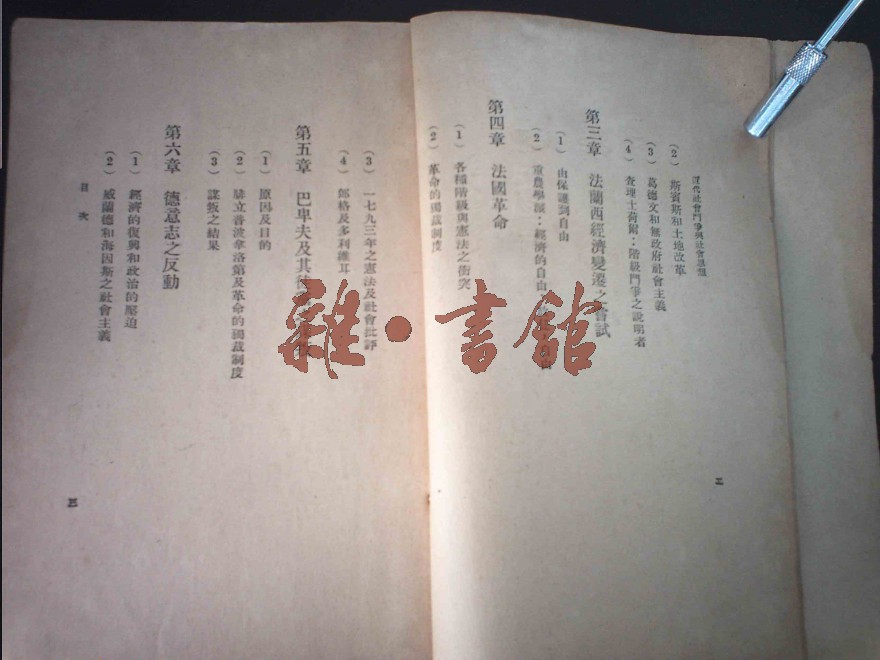 近代社會鬥爭與社會思想
(2) 斯賓斯和土地改革
(3) 葛德文和無政府社會主義
(4) 查理士荷爾：階級鬥爭之說明者
第三章 法蘭西經濟變遷之嘗試
(1) 由保護到自由
(2) 重農學派：經濟的自由
第四章 法國革命
(1) 各種階級與憲法之衝突
(2) 革命的獨裁制度
二
(3) 一七九三年之憲法及社會批評
(4) 郎格及多利維耳
第五章 巴卑夫及其徒
(1) 原因及目的
(2) 肆立普波拿洛第及革命的獨裁制度
(3) 謀叛之結果
第六章 德意志之反動
(1) 經濟的復興和政治的壓迫
(2) 威蘭德和海因斯之社會主義
目次
三
雜·書館